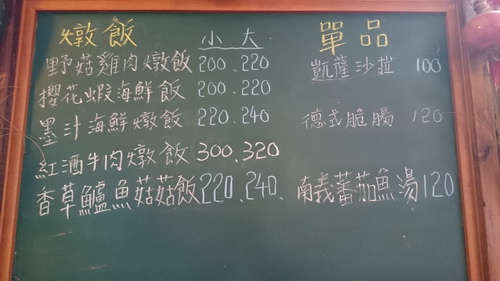 燉飯 小 大
野菇雞肉燉飯 200、220
櫻花蝦海鮮飯 200、220
墨汁海鮮燉飯 220、240
紅酒牛肉燉飯 300、320
香草鱸魚菇菇飯 220、240、
單品
凱薩沙拉 100
德式脆腸 120
南義蕃茄魚湯 120